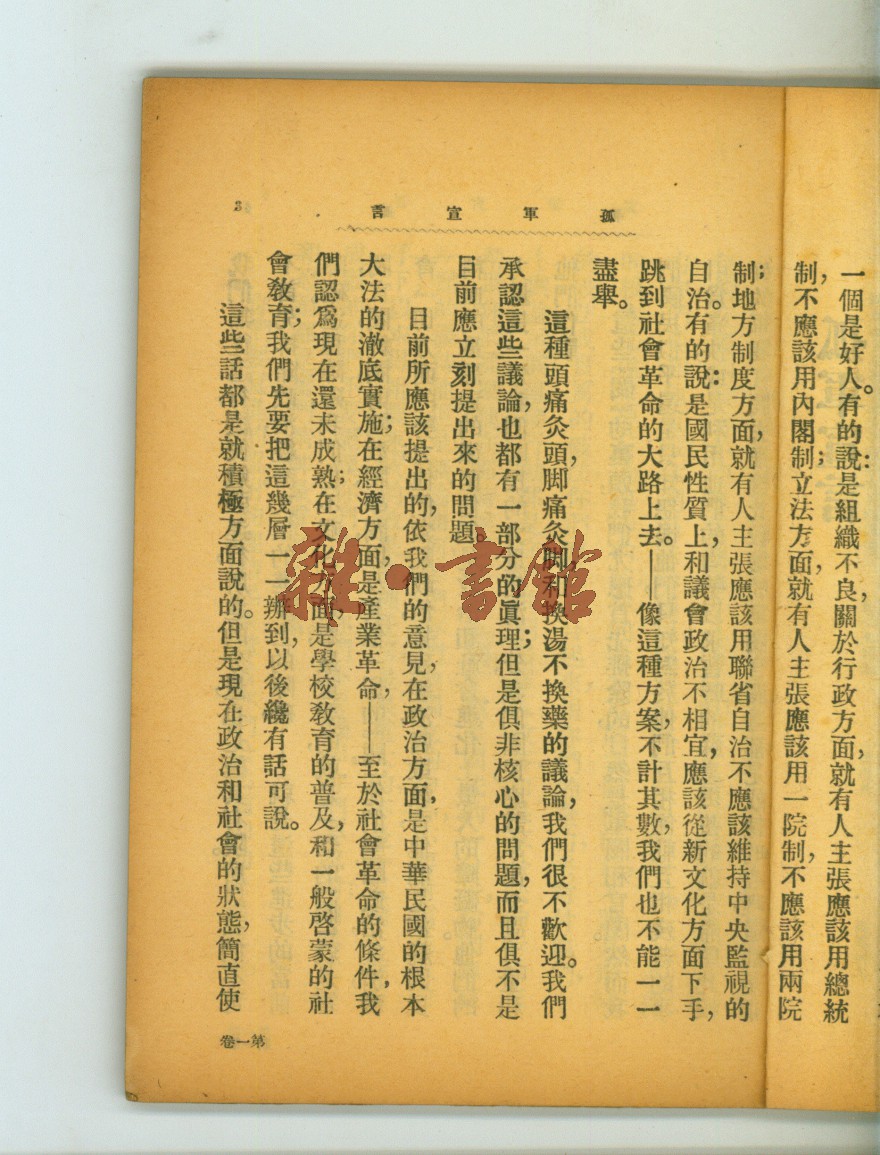 孤軍宣言
3
一個是好人。有的說:是組織不良,關於行政方面,就有人主張應該用總統
制,不應該用內閣制;立法方面,就有人主張應該用一院制,不應該用兩院
制;地方制度方面,就有人主張應該用聯省自治不應該維持中央監視的
自治。有的說:是國民性質上,和議會政治不相宜,應該從新文化方面下手,
跳到社會革命的大路上去。——像這種方案,不計其數,我們也不能一一
盡舉。
這種頭痛灸頭,脚痛灸脚和換湯不換藥的議論,我們很不歡迎。我們
承認這些議論,也都有一部分的眞理;但是俱非核心的問題,而且俱不是
目前應立刻提出來的問題。
目前所應該提出的,依我們的意見,在政治方面,是中華民國的根本
大法的澈底實施;在經濟方面,是產業革命,——至於社會革命的條件,我
們認爲現在還未成熟;在文化方面,是學校敎育的普及,和一般啓蒙的社
會敎育;我們先要把這幾層一一辦到,以後纔有話可說。
這些話都是就積極方面說的。但是現在政治和社會的狀態,簡直使
第一卷
雜·書館